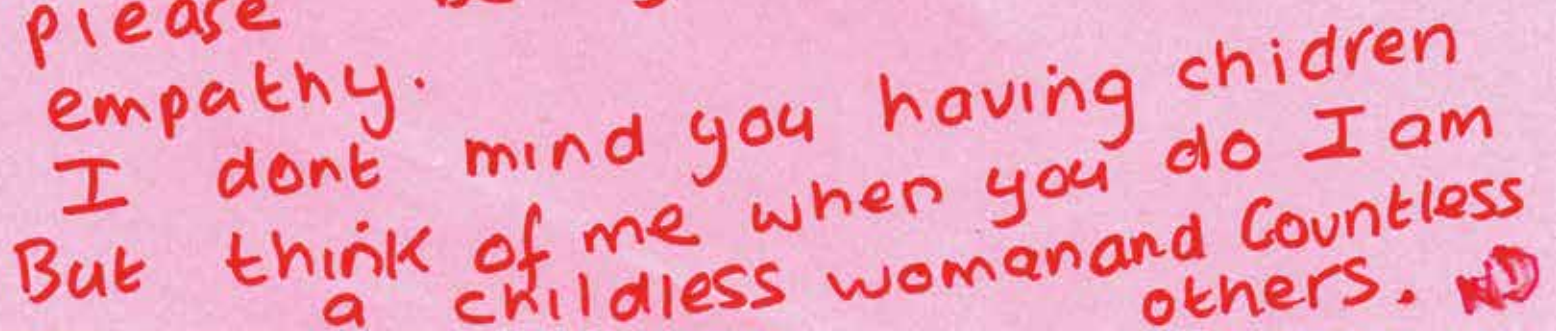 please
empathy.
I dont mind you having chidren
But think of me when you do I am
a childless womanand Countless
others.